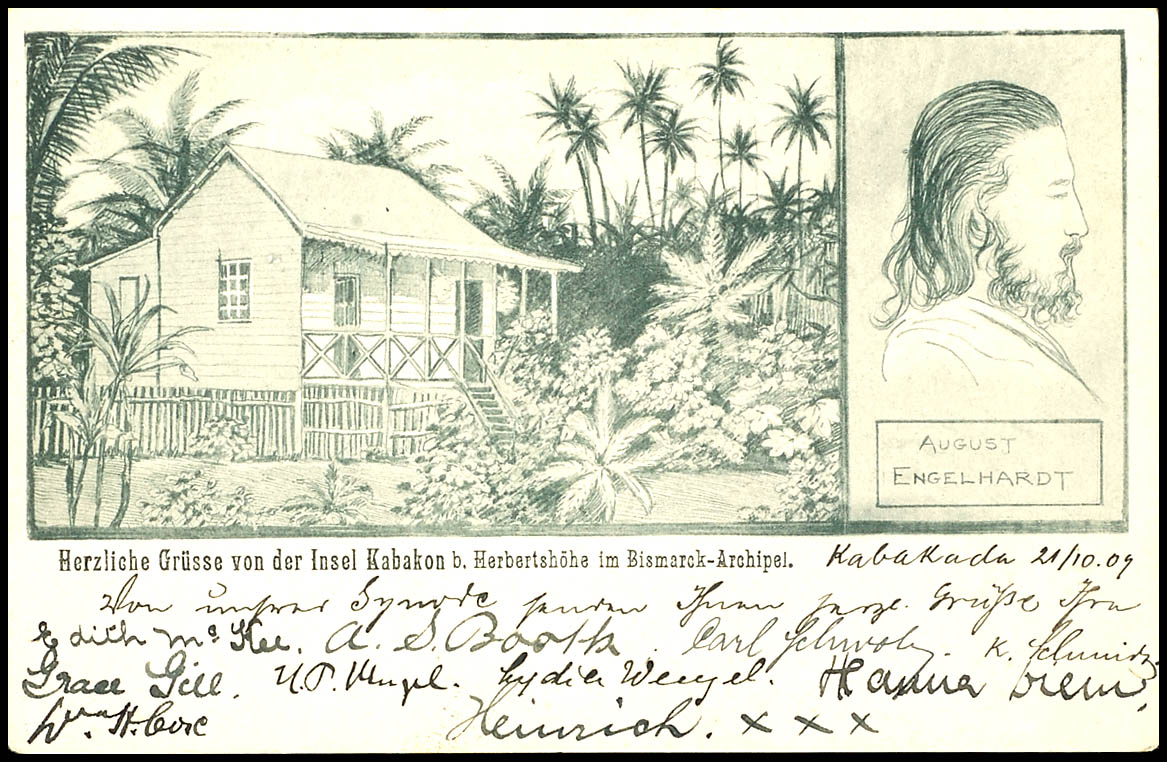 AUGUST
ENGELHARDT
Herzliche Grüsse von der Insel Kabakon b. Herbertshöhe im Bismarck-Archipel.
Kabakada 21/10.09
Von unsrer Synode senden Ihnen herzl. Grüße Ihre
Edith McKee. A. S. Booth. Carl K. Schmidt
Grace Gill. Lydia Wenzel. Hanna
Wm. H. Cox Heinrich. x x x